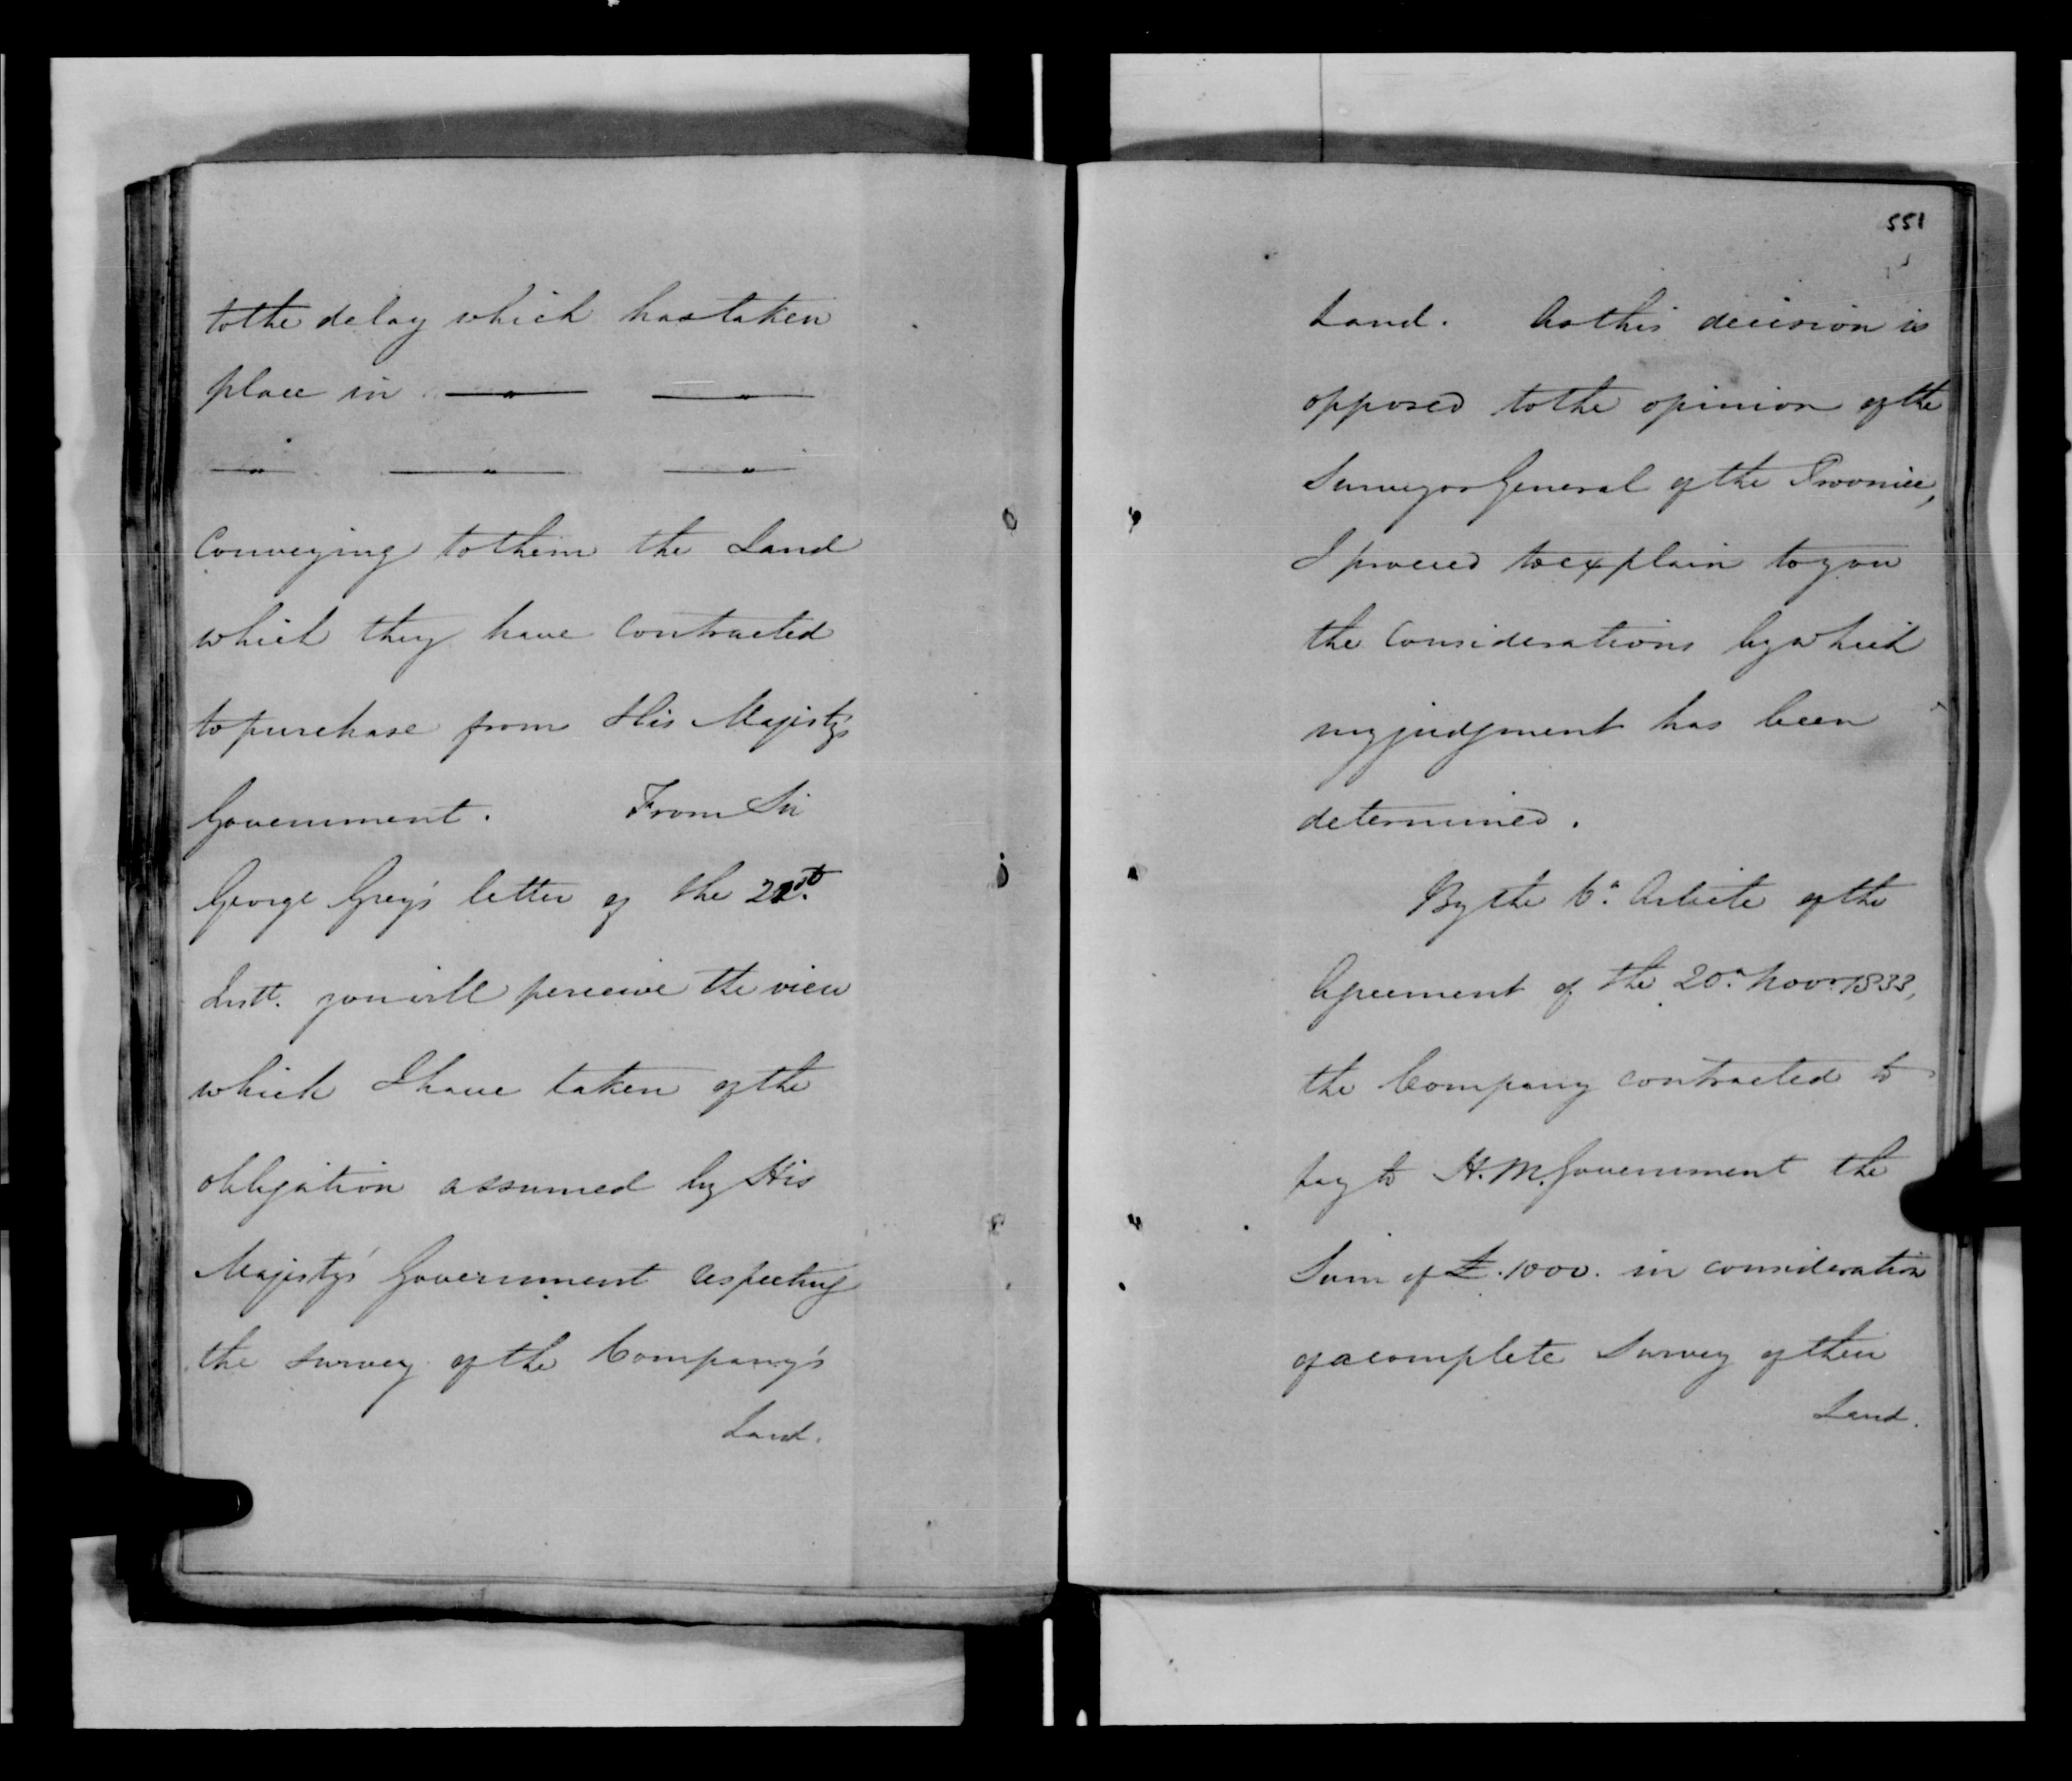 to the delay which has taken
place in —"— —"—
—"— —"— —"—
Conveying to them the Land
which they have Contracted
to purchase from His Majesty's
Government. From Sir
George Grey's letter of the 21st.
Instt. you will perceive the view
which I have taken of the
obligation assumed by His
Majesty's Government respecting
the survey of the Company's
Land.
551
Land. As this decision is
opposed to the opinion of the
Surveyor General of the Province,
I proceed to explain to you
the Considerations by which
my judgment has been
determined.
By the 6th. Article of the
Agreement of the 20th. Novr. 1833,
the Company contracted to
pay to H. M. Government the
Sum of £.1000. in consideration
of a complete Survey of their
Land.